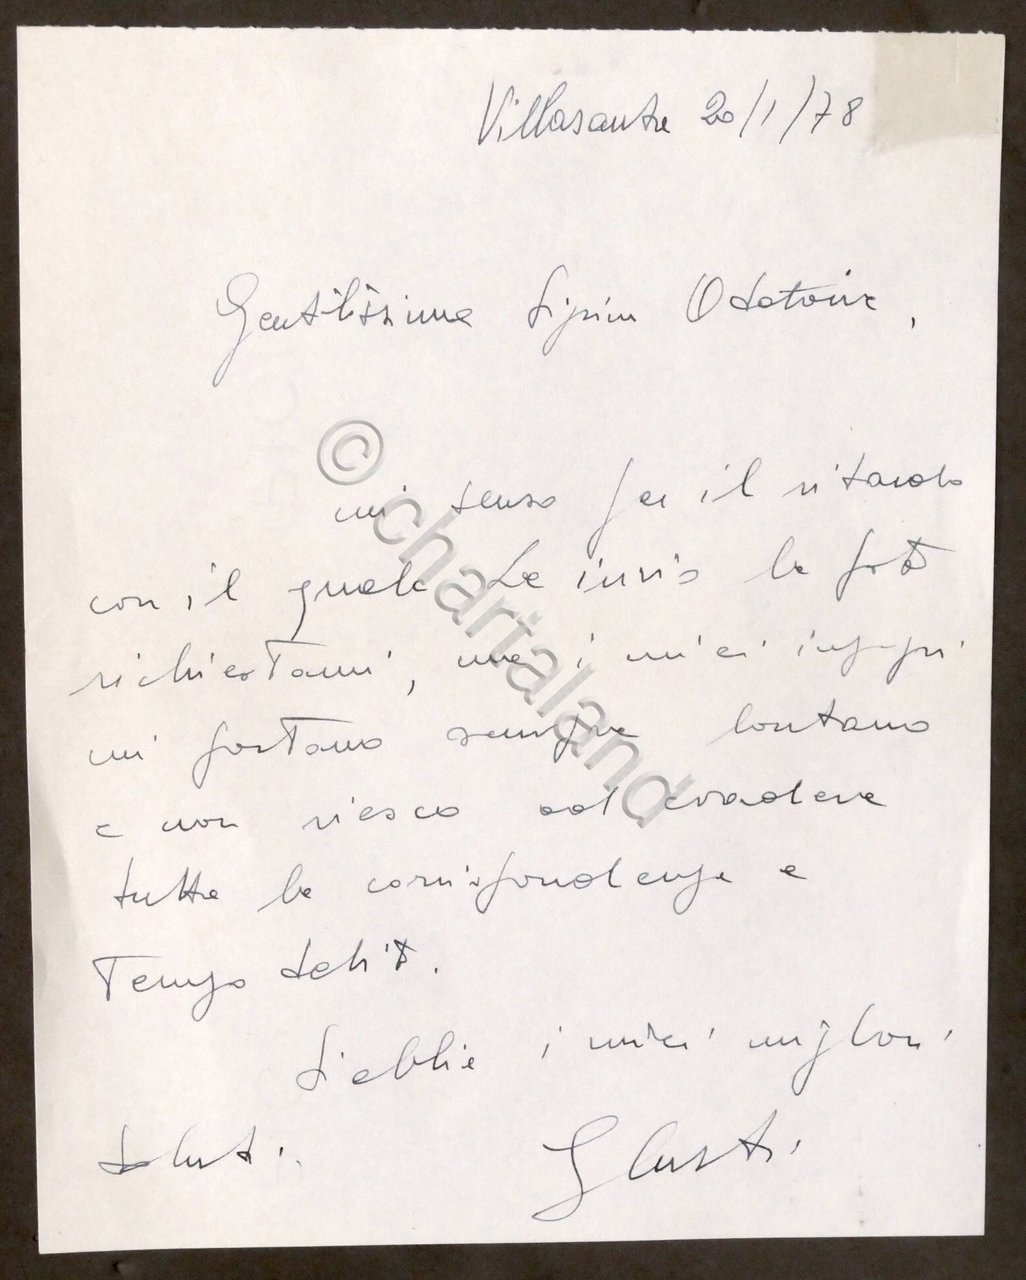 Villasanta 20/1/78
Gentilissimo Signor
mi scuso per il ritardo
con il quale Le invio le foto
richiestami, ma i miei impegni
mi portano sempre lontano
e non riesco ad evadere
tutta la corrispondenza a
Tempo debito.
Si abbia i miei migliori
saluti.
© chartaland